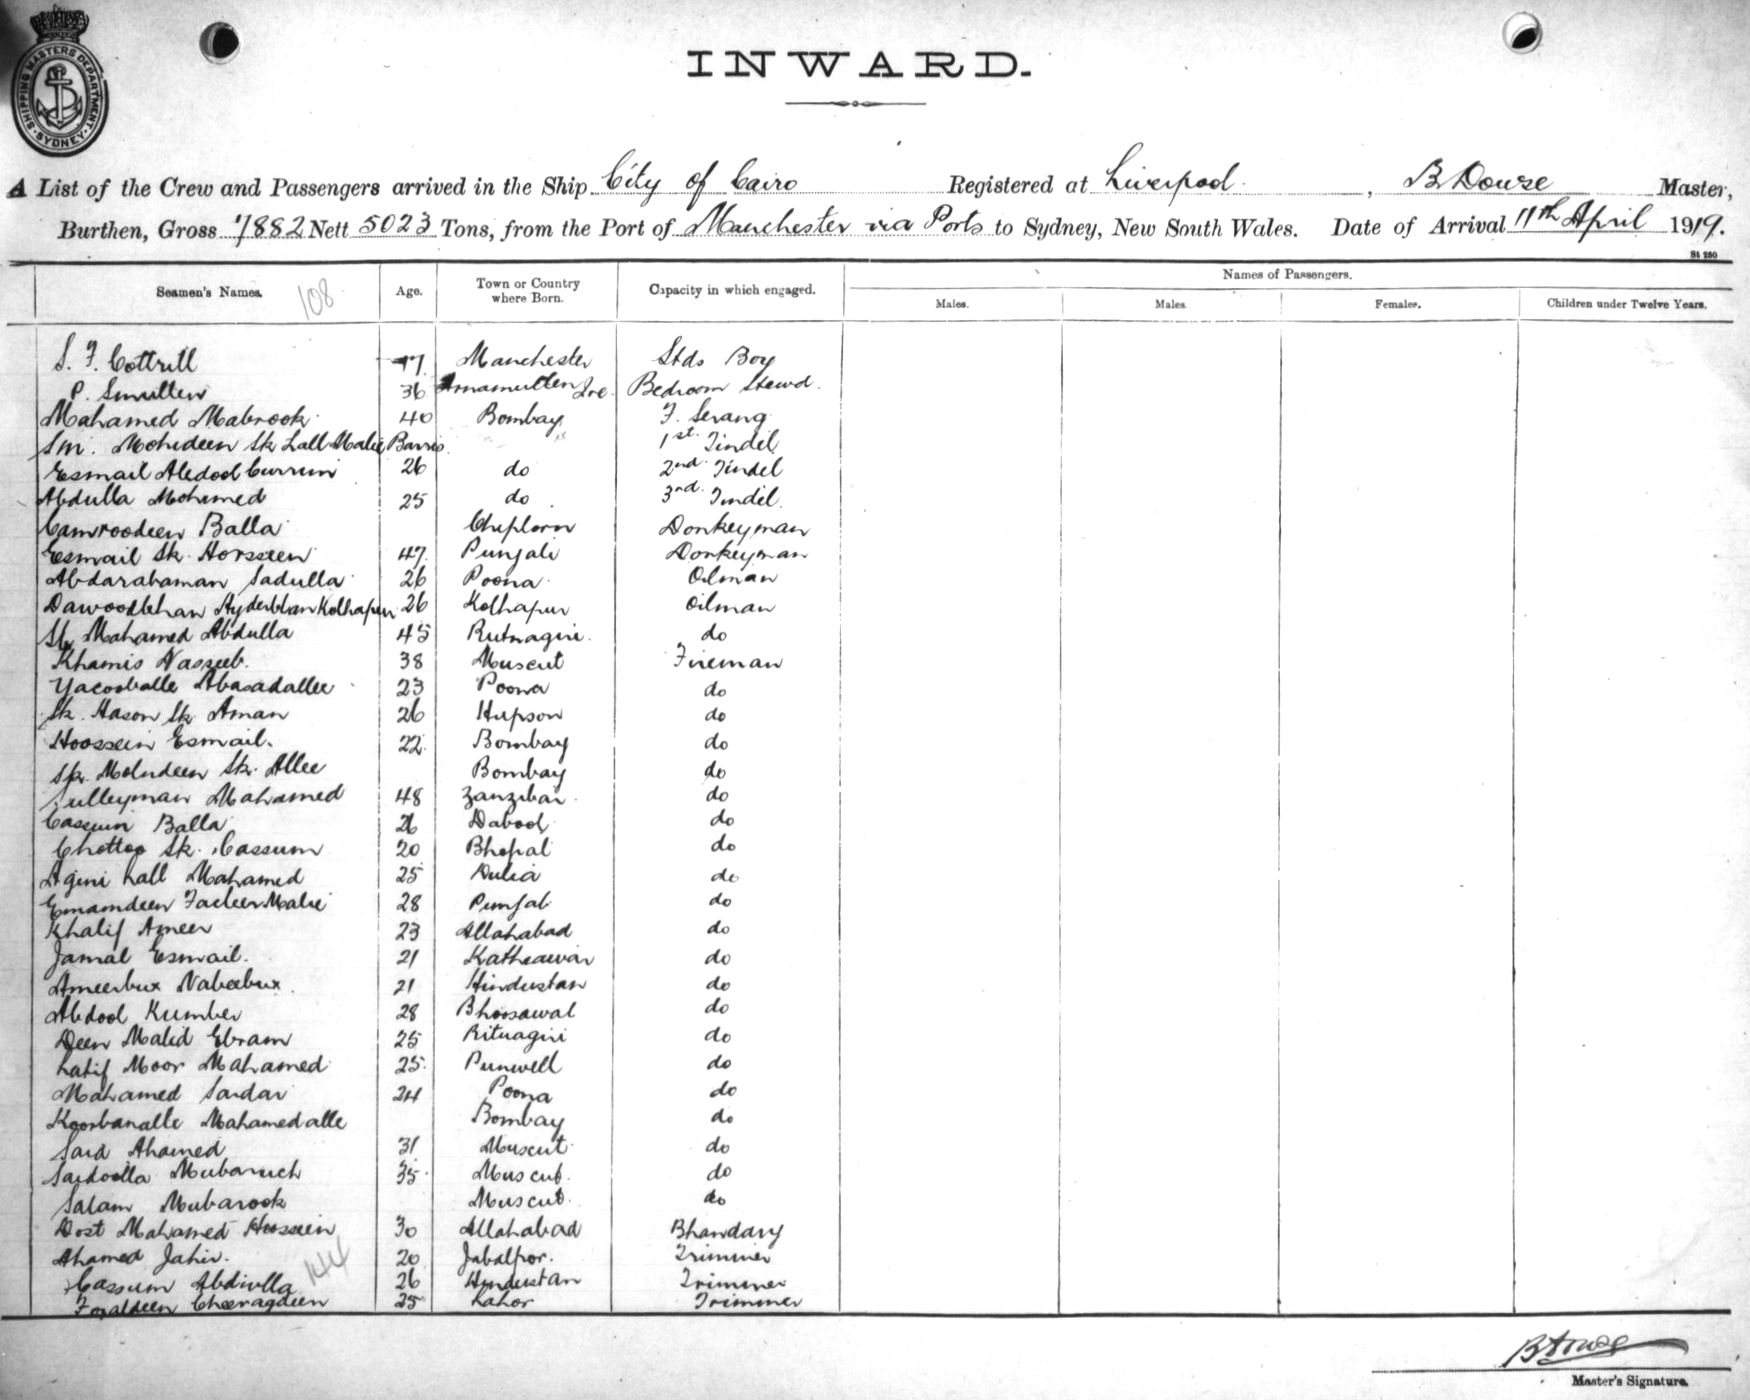 SHIPPING MASTERS DEPARTMENT · SYDNEY ·
INWARD.
A List of the Crew and Passengers arrived in the Ship City of Cairo Registered at Liverpool, B Dowse Master,
Burthen, Gross 7882 Nett 5023 Tons, from the Port of Manchester via Ports to Sydney, New South Wales. Date of Arrival 11th April 1919.
St 250
Seamen's Names. 108 Age. Town or Country where Born. Capacity in which engaged. Names of Passengers.
Males. Males. Females. Children under Twelve Years.
S. F. Cottrill 17. Manchester Stds Boy
P. Smullen 36 Ire. Bedroom Stewd.
Mahamed Mabrook 40 Bombay F. Serang
Sm. Mohideen Sk Lall Malie Barris. 1st Tindel
Esmail Abdool Currim 26 do 2nd Tindel
Abdulla Mohamed 25 do 3rd Tindel
Camroodeen Balla Chiplorn Donkeyman
Esmail Sk. Horsseen 47. Punjab Donkeyman
Abdarahaman Sadulla 26 Poona Oilman
Dawoodkhan Hyderkhan Kolhapur 26 Kolhapur Oilman
Sk Mahamed Abdulla 45 Rutnagiri. do
Khamis Nasseeb. 38 Muscut Fireman
Yacooballe Abasadallee 23 Poona do
Sk. Hason Sk Aman 26 Hupson do
Hoossein Esmail. 22 Bombay do
Sk. Mohideen Sk. Allee Bombay do
Sulleyman Mahamed 48 Zanzibar. do
Cassum Balla 26 Dabool do
Chottoo Sk. Cassum 20 Bhopal do
Agini Lall Mahamed 25 Dulia do
Emamdeen Fackeer Malie 28 Punjab do
Khalif Ameer 23 Allahabad do
Jamal Esmail. 21 Katheawar do
Ameerbux Nabeebux 21 Hindustan do
Abdool Kumber 28 Bhoosawal do
Deen Malid Ebram 25 Rituagiri do
Latif Moor Mahamed 25 Punwell do
Mahamed Sardar 24 Poona do
Koorbanalle Mahamedalle Bombay do
Said Ahamed 31 Muscut do
Saidoolla Mubaruch 35 Muscut. do
Salam Mubarook Muscut. do
Dost Mahamed Hoossein 30 Allahabad Bhandary
Ahamed Jahir. 20 Jabalpor. Trimmer
Cassum Abdulla 144 26 Hindustan Trimmer
Fozaldeen Cheeragdeen 25 Lahor Trimmer
B Dowse
Master's Signature.